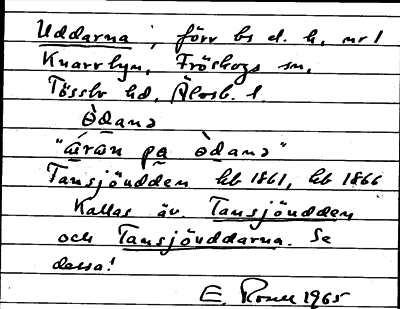 Uddarna, förr bs d. h. nr 1
Knarrbyn, Fröskogs sn,
Tössbo hd, Älvsb. l.
òdana
"æ̀ræn pa òdana"
Tansjöudden hb 1861, hb 1866
Kallas äv. Tansjöudden
och Tansjöuddarna. Se
dessa!
E. 1965